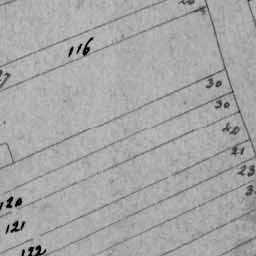 116
30
30
20
21
23
120
121
122